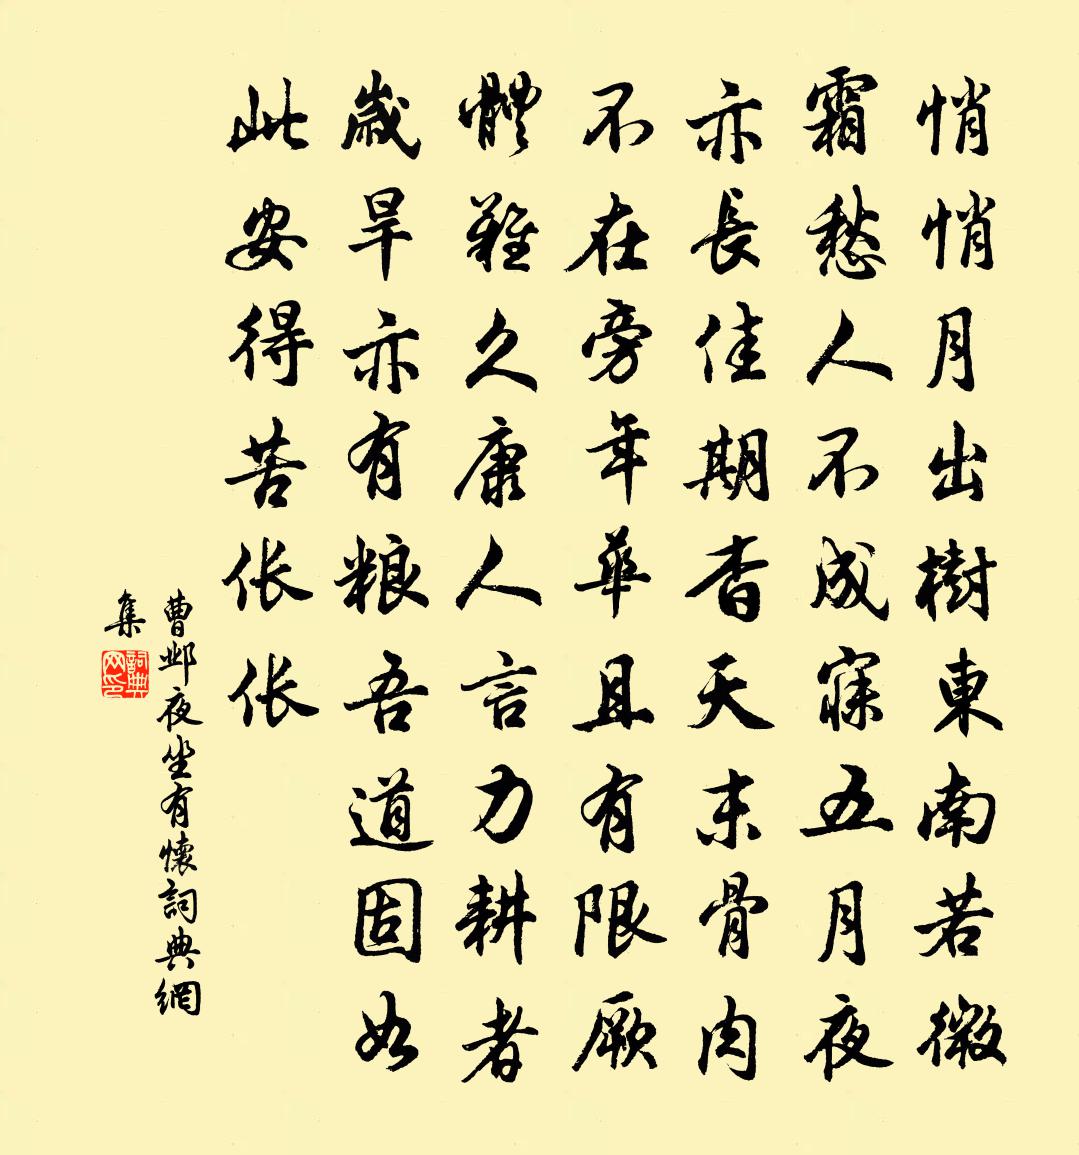 悄悄月出樹東南若微
霜愁人不成寐五月夜
亦長佳期杳天末骨肉
不在旁年華且有限厥
體難久康人言力耕者
歲旱亦有粮吾道固如
此安得苦伥伥
曹邺夜坐有懷詞典網
集
詞典
网印